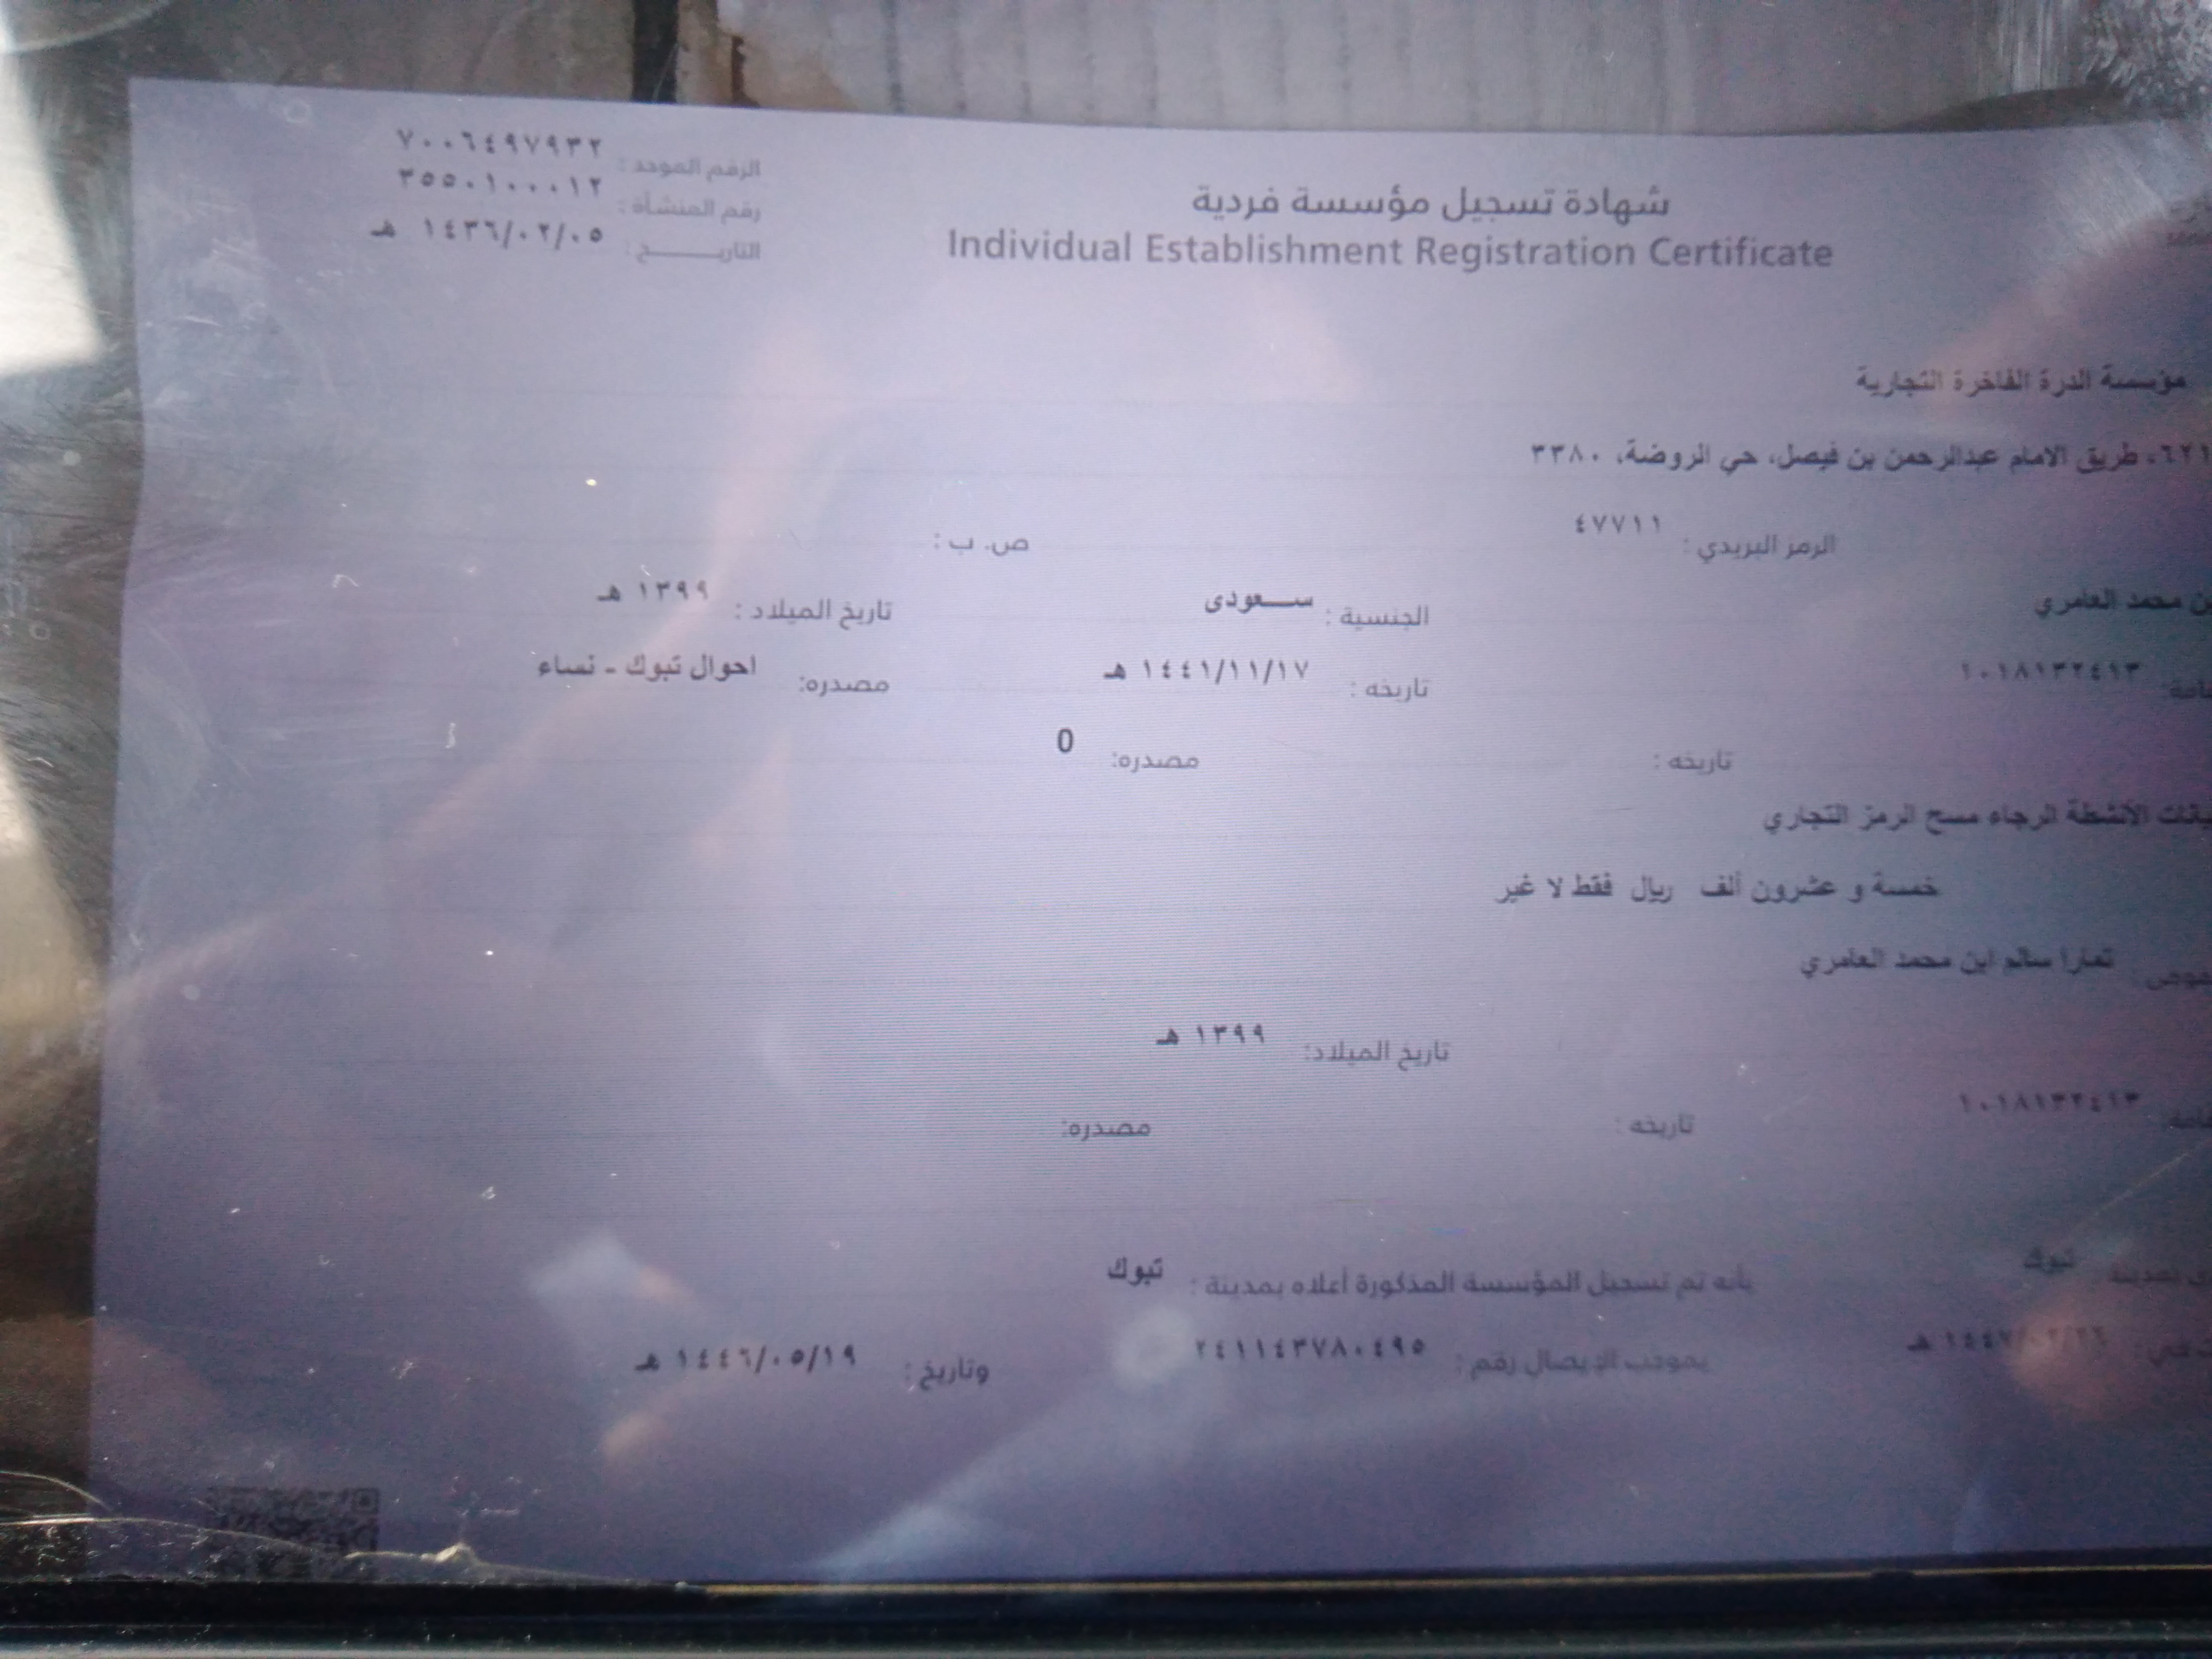 شهادة تسجيل مؤسسة فردية
Individual Establishment Registration Certificate
الرقم الموحد : ٧٠٠٦٤٩٧٩٣٢
رقم المنشأة : ٣٥٥٠١٠٠٠١٢
التاريـــــخ : ١٤٣٦/٠٢/٠٥ هـ
مؤسسة الدرة الفاخرة التجارية
طريق الامام عبدالرحمن بن فيصل، حي الروضة، ٣٣٨٠
الرمز البريدي : ٤٧٧١١ ص. ب :
محمد العامري الجنسية : سـعودى تاريخ الميلاد : ١٣٩٩ هـ
١٠١٨١٣٢٤١٣ تاريخه : ١٤٤١/١١/١٧ هـ مصدره: احوال تبوك - نساء
تاريخه : مصدره: 0
الأنشطة الرجاء مسح الرمز التجاري
خمسة و عشرون ألف ريال فقط لا غير
تمارا سالم ابن محمد العامري
تاريخ الميلاد: ١٣٩٩ هـ
١٠١٨١٣٢٤١٣ تاريخه : مصدره:
تبوك بأنه تم تسجيل المؤسسة المذكورة أعلاه بمدينة : تبوك
بموجب الإيصال رقم : ٢٤١١٤٣٧٨٠٤٩٥ وتاريخ : ١٤٤٦/٠٥/١٩ هـ